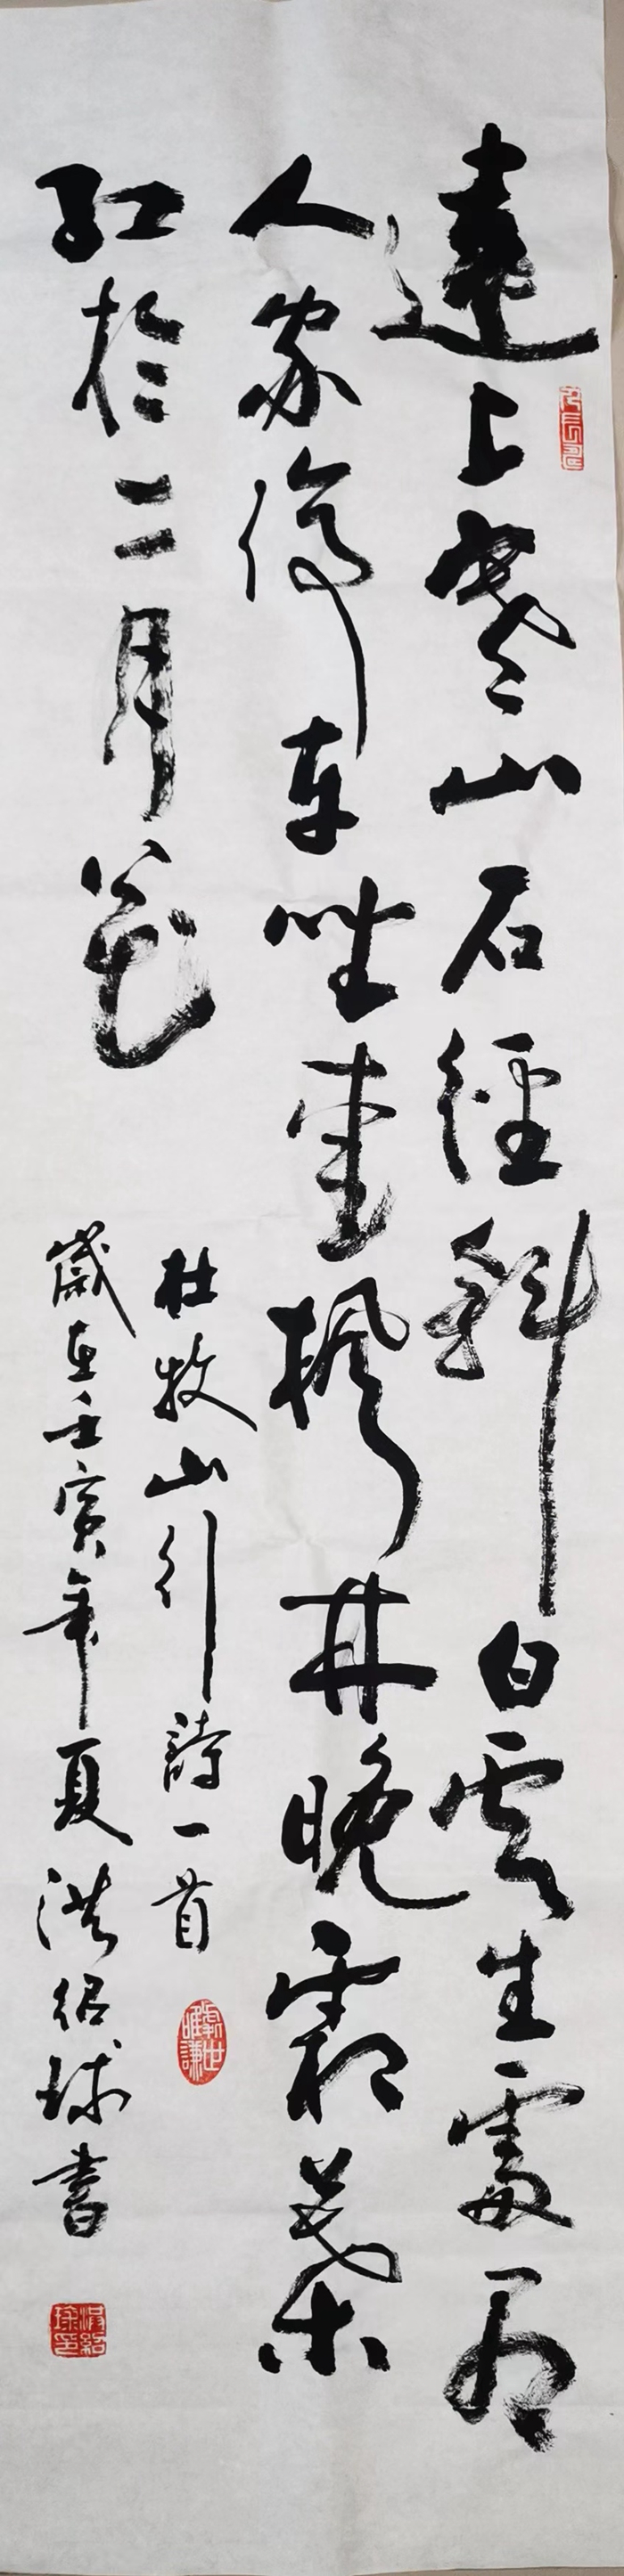 遠上寒山石徑斜白雲生處有
人家停車坐愛楓林晚霜葉
紅於二月花
杜牧山行詩一首
處世唯謙
歲在壬寅年夏洪紹球書
洪紹球印